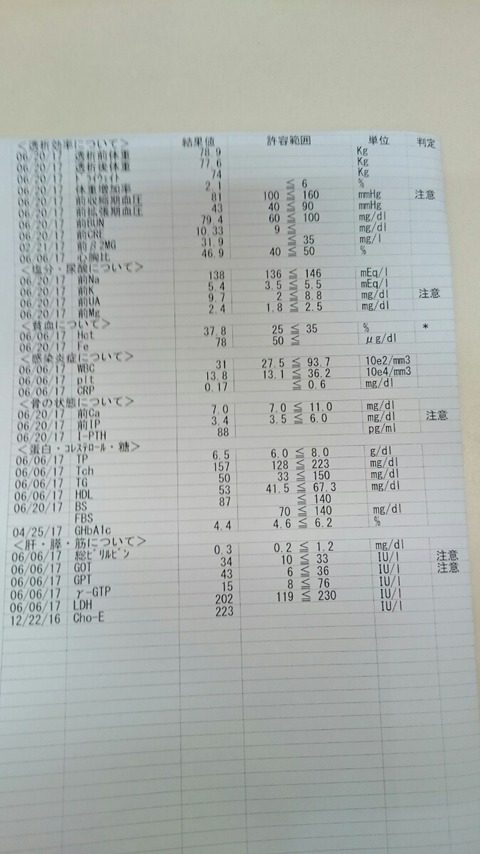 ＜透析効率について＞ 結果値 許容範囲 単位 判定
06/20/17 透析前体重 78.9 Kg
06/20/17 透析後体重 77.6 Kg
06/20/17 74 Kg
06/20/17 体重増加率 2.1 ≦ 6 %
06/20/17 前収縮期血圧 81 100 ≦ 160 mmHg 注意
06/20/17 前拡張期血圧 43 40 ≦ 90 mmHg
06/20/17 前BUN 79.4 60 ≦ 100 mg/dl
06/20/17 前CRE 10.33 9 ≦ mg/dl
前β2MG 31.9 ≦ 35 mg/l
06/06/17 心胸比 46.9 40 ≦ 50 %
＜塩分・尿酸について＞
06/20/17 前Na 138 136 ≦ 146 mEq/l
06/20/17 前K 5.4 3.5 ≦ 5.5 mEq/l
06/20/17 前UA 9.7 2 ≦ 8.8 mg/dl 注意
06/20/17 前Mg 2.4 1.8 ≦ 2.5 mg/dl
＜貧血について＞
06/06/17 Hct 37.8 25 ≦ 35 % *
06/20/17 Fe 78 50 ≦ μg/dl
＜感染炎症について＞
06/06/17 WBC 31 27.5 ≦ 93.7 10e2/mm3
06/06/17 plt 13.8 13.1 ≦ 36.2 10e4/mm3
06/06/17 CRP 0.17 ≦ 0.6 mg/dl
＜骨の状態について＞
06/20/17 前Ca 7.0 7.0 ≦ 11.0 mg/dl
06/20/17 前IP 3.4 3.5 ≦ 6.0 mg/dl 注意
06/20/17 I-PTH 88 pg/ml
＜蛋白・コレステロール・糖＞
06/06/17 TP 6.5 6.0 ≦ 8.0 g/dl
06/06/17 Tch 157 128 ≦ 223 mg/dl
06/06/17 TG 50 33 ≦ 150 mg/dl
06/06/17 HDL 53 41.5 ≦ 67.3 mg/dl
06/20/17 BS 87 ≦ 140
FBS 70 ≦ 140 mg/dl
04/25/17 GHbA1c 4.4 4.6 ≦ 6.2 %
＜肝・膵・筋について＞
06/06/17 総ビリルビン 0.3 0.2 ≦ 1.2 mg/dl
06/06/17 GOT 34 10 ≦ 33 IU/l 注意
06/06/17 GPT 43 6 ≦ 36 IU/l 注意
06/06/17 γ-GTP 15 8 ≦ 76 IU/l
06/06/17 LDH 202 119 ≦ 230 IU/l
12/22/16 Cho-E 223